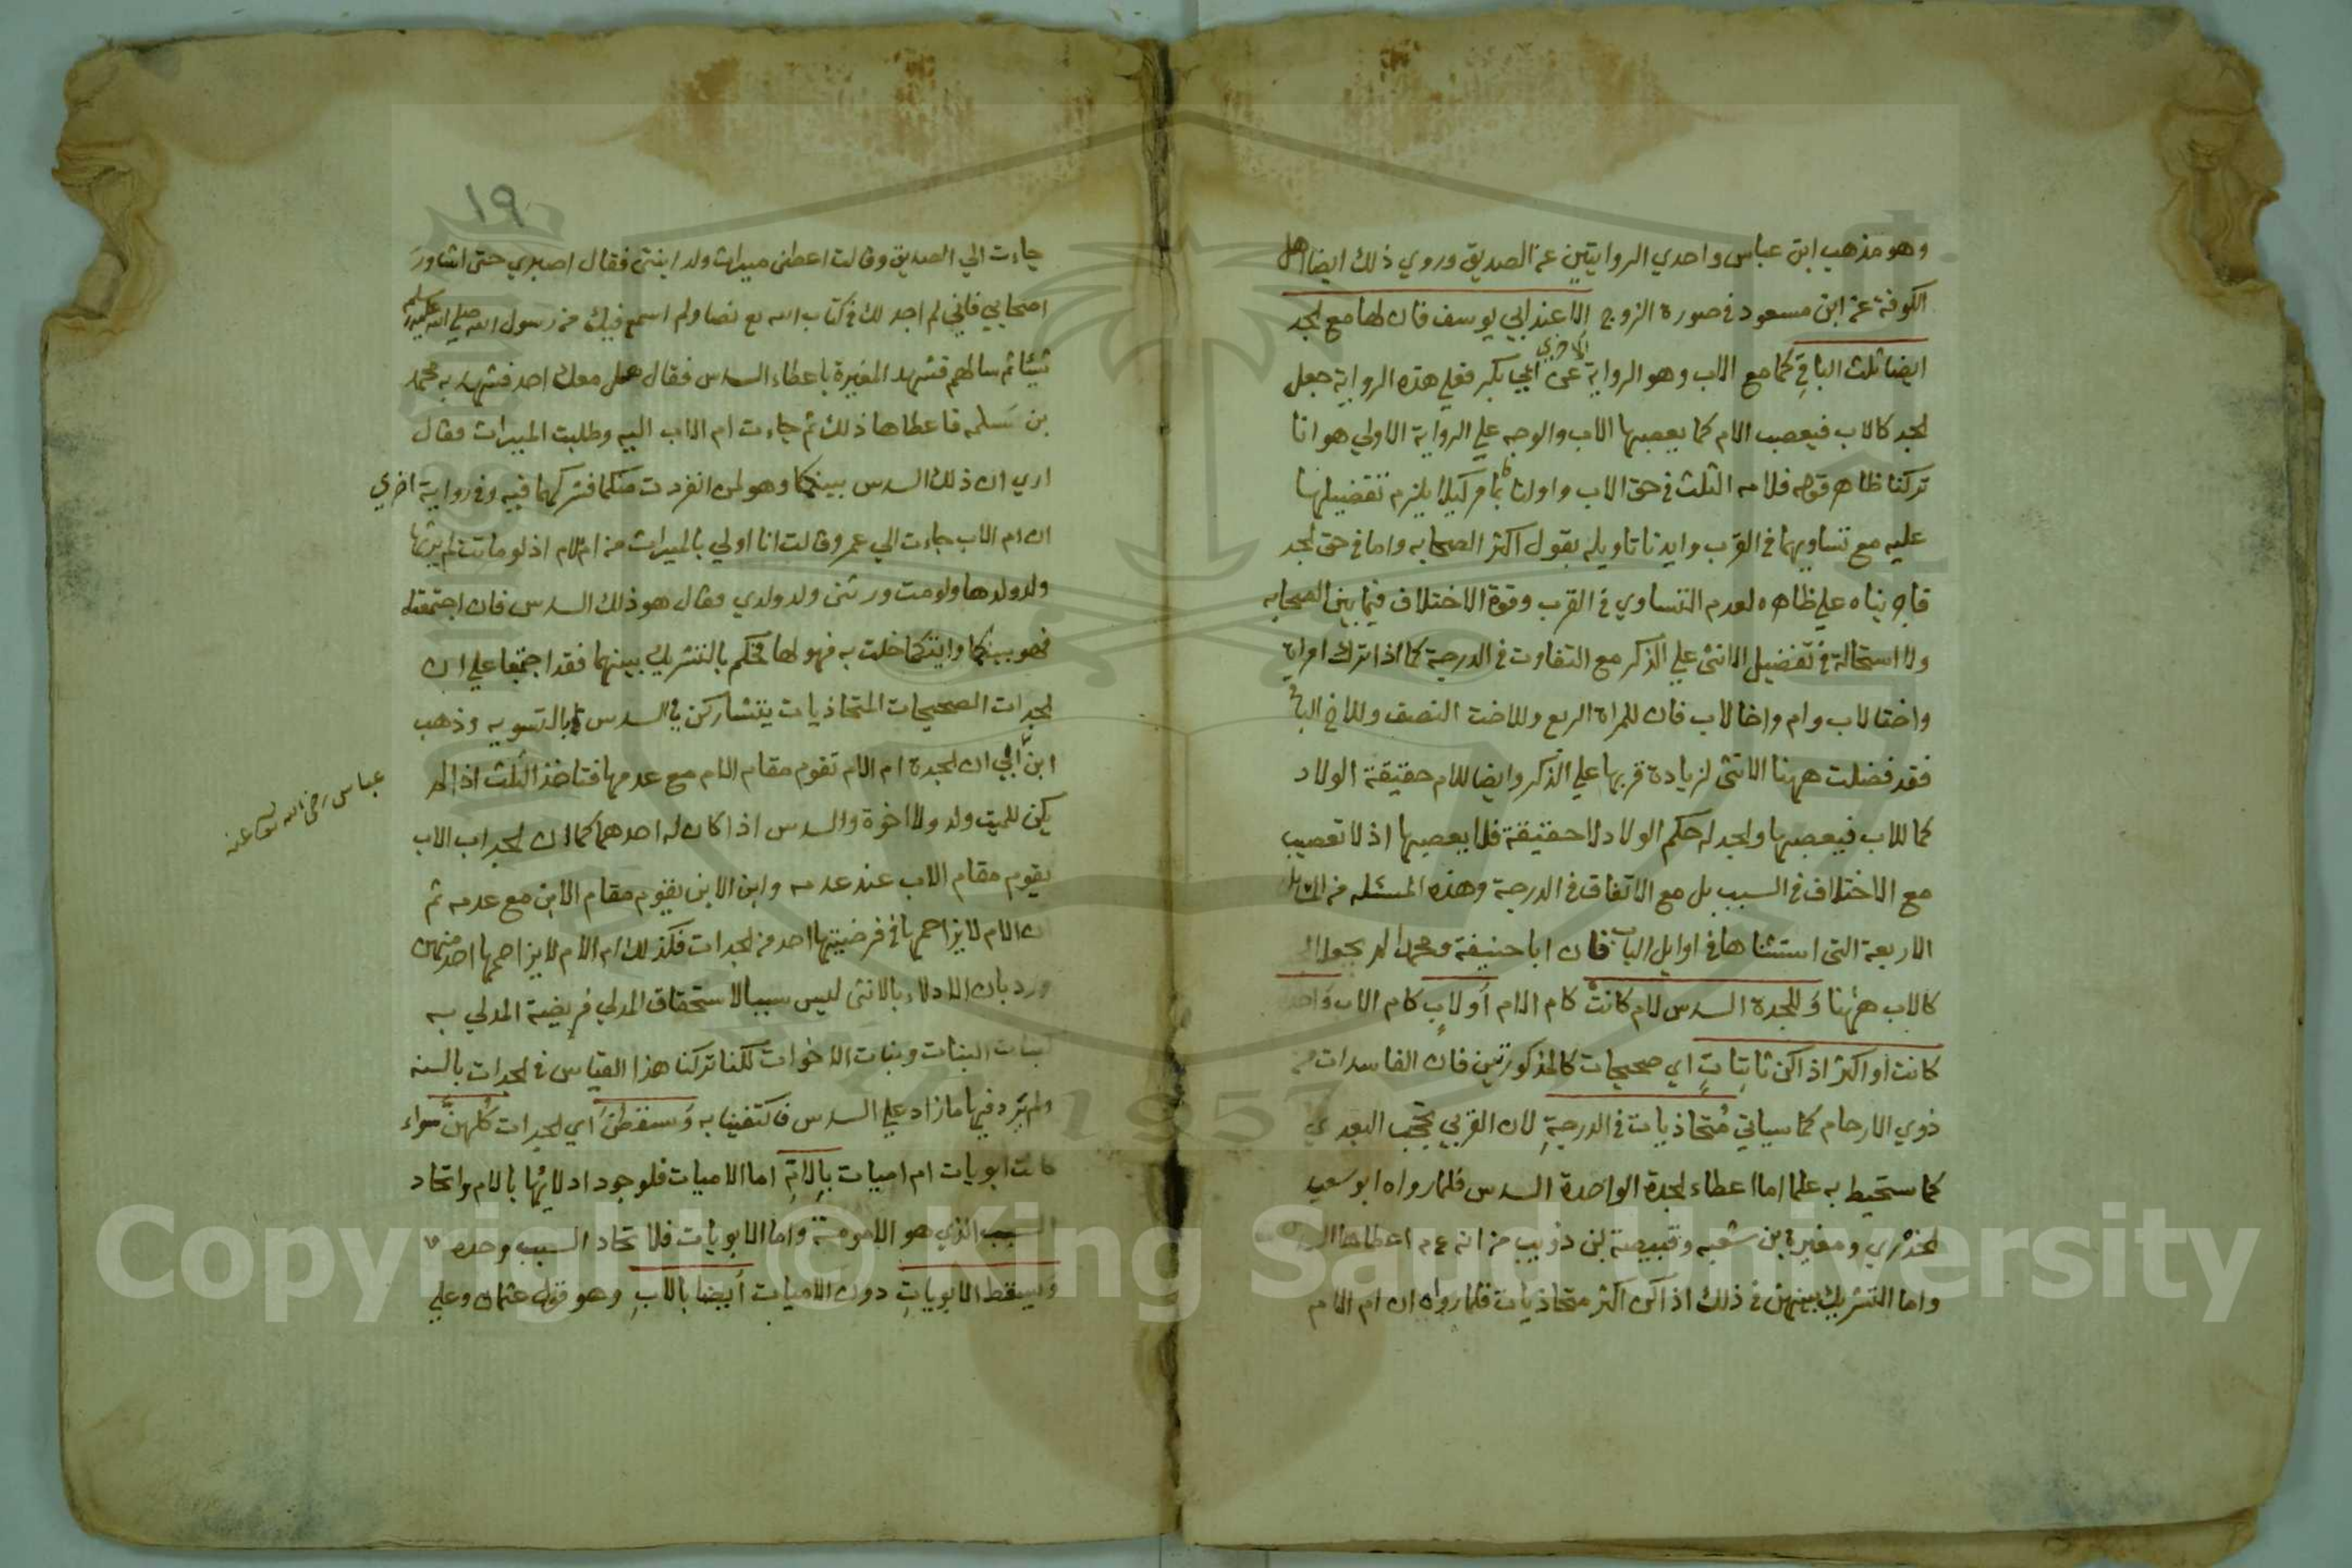 وهو مذهب ابن عباس واحدي الروايتين عن الصديق وروي ذلك ايضا اهل
الكوفة عن ابن مسعود في صورة الزوج الا عند ابي يوسف فان لها مع الجد
ايضا ثلث الباقي كما مع الاب وهو الرواية الاخري عن ابي بكر فعلي هذه الرواية جعل
الجد كالاب فيعصب الام كما يعصبها الاب والوجه علي الرواية الاولي هو انا
تركنا ظاهر قوله فلامه الثلث في حق الاب واولنا بما مر كيلا يلزم تفضيلها
عليه مع تساويهما في القرب وايدنا تاويله بقول اكثر الصحابه واما في حق الجد
فابقيناه علي ظاهره لعدم التساوي في القرب وقوة الاختلاف فيما بين الصحابه
ولا استحالة في تفضيل الانثي علي الذكر مع التفاوت في الدرجة كما اذا ترك امراة
واختا لاب وام واخا لاب فان للمراة الربع وللاخت النصف وللاخ الباقي
فقد فضلت ههنا الانثي لزيادة قربها علي الذكر وايضا للام حقيقة الولاد
كما للاب فيعصبها والجد له حكم الولاد لا حقيقة فلا يعصبها اذ لا تعصيب
مع الاختلاف في السبب بل مع الاتفاق في الدرجة وهذه المسئله من المسايل
الاربعة التي استثناها في اوايل الباب فان ابا حنيفة ومحمدا لم يجعلا
كالاب ههنا وللجدة السدس لام كانت كام الام او لاب كام الاب واحدة
كانت او اكثر اذا كن ثابتات اي صحيحات كالمذكورتين فان الفاسدات من
ذوي الارحام كما سياتي متحاذيات في الدرجة لان القربي تحجب البعدي
كما ستحيط به علما اما اعطاء الجدة الواحدة السدس فلما رواه ابو سعيد
الخدري ومغيرة بن شعبه وقبيصة بن ذويب من انه عم اعطاها
واما التشريك بينهن في ذلك اذا كن اكثر متحاذيات فلما رواه ان ام الام
١٩
جاءت الي الصديق وقالت اعطني ميراث ولد ابنتي فقال اصبري حتي اشاور
اصحابي فاني لم اجد لك في كتاب الله تع نصا ولم اسمع فيك من رسول الله صلي الله عليه وسلم
شيئا ثم سالهم فشهد المغيرة باعطاء السدس فقال هل معك احد فشهد به محمد
بن مسلمه فاعطاها ذلك ثم جاءت ام الاب اليه وطلبت الميراث فقال
اري ان ذلك السدس بينكما وهو لمن انفردت منكما فشركهما فيه وفي رواية اخري
ان ام الاب جاءت الي عمر وقالت انا اولي بالميراث من ام الام اذ لو ماتت لم يرثها
ولد ولدها ولو مت ورثني ولد ولدي فقال هو ذلك السدس فان اجتمعتما
فهو بينكما وايتكما خلت به فهو لها فحكم بالتشريك بينهما فقد اجتمعا علي ان
الجدات الصحيحات المتحاذيات يتشاركن في السدس بالتسويه وذهب
ابن الي ان الجدة ام الام تقوم مقام الام مع عدمها فتاخذ الثلث اذا لم
عباس رضي الله تع عنه
يكن للميت ولد ولا اخوة والسدس اذا كان له احدهما كما ان الجد اب الاب
يقوم مقام الاب عند عدمه وابن الابن يقوم مقام الابن مع عدمه ثم
ان الام لا يزاحمها في فرضيتها احد من الجدات فكذلك ام الام لا يزاحمها احد منهن
ورد بان الادلاء بالانثي ليس سببا لاستحقاق المدلي فريضة المدلي به
كبنات البنات وبنات الاخوات لكنا تركنا هذا القياس في الجدات بالسنه
ولم يرد فيها ما زاد علي السدس فاكتفينا به ويسقطن اي الجدات كلهن سواء
كانت ابويات ام اميات بالام اما الاميات فلوجود ادلائها بالام واتحاد
السبب الذي هو الامومة واما الابويات فلاتحاد السبب وحده
ويسقط الابويات دون الاميات ايضا بالاب وهو قول عثمان وعلي
Copyright © King Saud University
1957